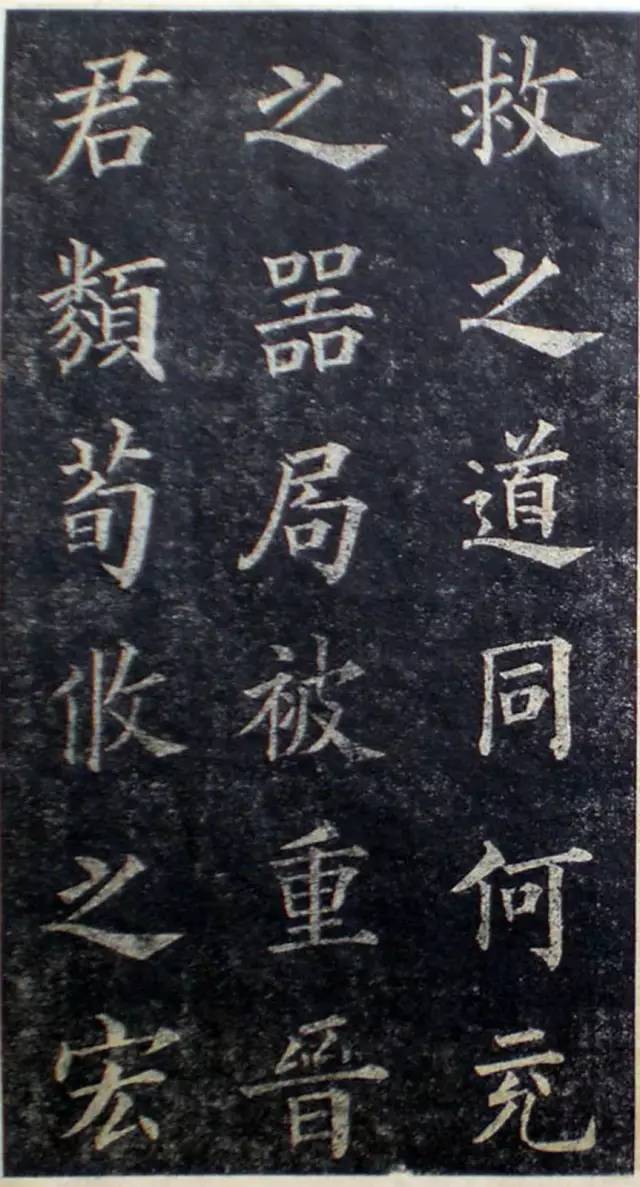 救之道同何充
之噐局被重晉
君類荀攸之宏